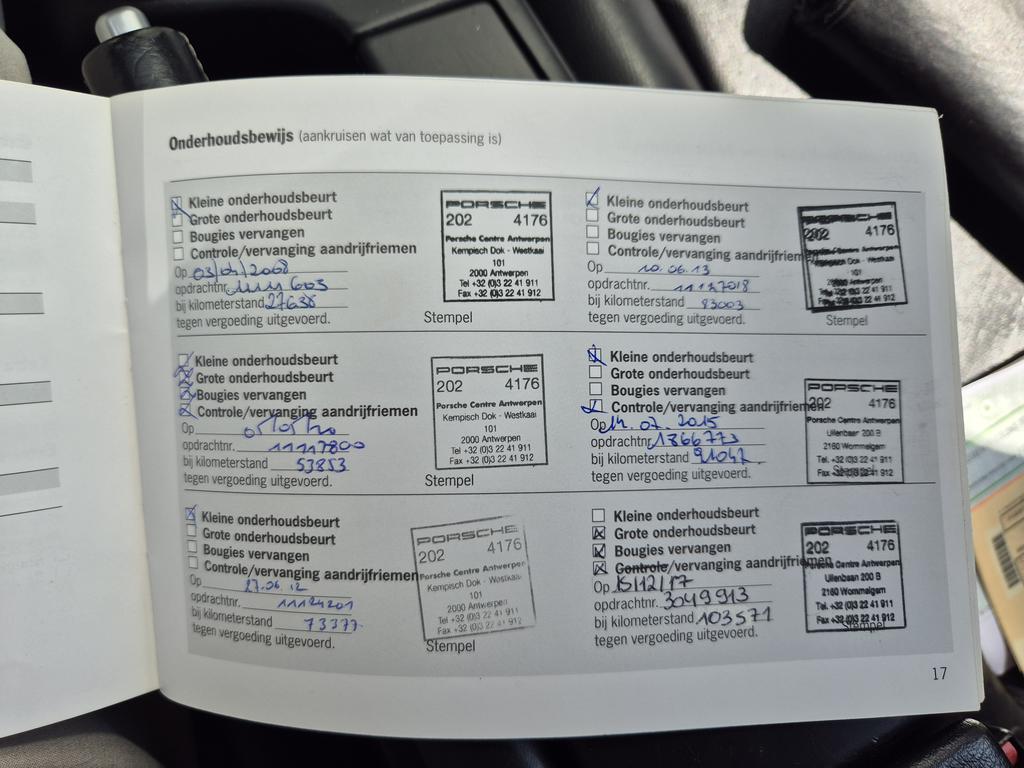 Onderhoudsbewijs (aankruisen wat van toepassing is)
Kleine onderhoudsbeurt
Grote onderhoudsbeurt
Bougies vervangen
Controle/vervanging aandrijfriemen
Op 03/04/2008
opdrachtnr.
bij kilometerstand 27638
tegen vergoeding uitgevoerd.
PORSCHE
202 4176
Porsche Centre Antwerpen
Kempisch Dok - Westkaai
101
2000 Antwerpen
Tel +32 (0)3 22 41 911
Fax +32 (0)3 22 41 912
Stempel
Kleine onderhoudsbeurt
Grote onderhoudsbeurt
Bougies vervangen
Controle/vervanging aandrijfriemen
Op
opdrachtnr. 11117800
bij kilometerstand 53853
tegen vergoeding uitgevoerd.
PORSCHE
202 4176
Porsche Centre Antwerpen
Kempisch Dok - Westkaai
101
2000 Antwerpen
Tel +32 (0)3 22 41 911
Fax +32 (0)3 22 41 912
Stempel
Kleine onderhoudsbeurt
Grote onderhoudsbeurt
Bougies vervangen
Controle/vervanging aandrijfriemen
Op 27.06.12
opdrachtnr. 11124201
bij kilometerstand 73377
tegen vergoeding uitgevoerd.
PORSCHE
202 4176
Porsche Centre Antwerpen
Kempisch Dok - Westkaai
101
2000 Antwerpen
Tel +32 (0)3 22 41 911
Fax +32 (0)3 22 41 912
Stempel
Kleine onderhoudsbeurt
Grote onderhoudsbeurt
Bougies vervangen
Controle/vervanging aandrijfriemen
Op 10.06.13
opdrachtnr. 11127018
bij kilometerstand 83003
tegen vergoeding uitgevoerd.
PORSCHE
202 4176
Porsche Centre Antwerpen
Kempisch Dok - Westkaai
101
2000 Antwerpen
Tel +32 (0)3 22 41 911
Fax +32 (0)3 22 41 912
Stempel
Kleine onderhoudsbeurt
Grote onderhoudsbeurt
Bougies vervangen
Controle/vervanging aandrijfriemen
Op 14.07.2015
opdrachtnr. 1366773
bij kilometerstand 91042
tegen vergoeding uitgevoerd.
PORSCHE
202 4176
Porsche Centre Antwerpen
Uilenbaan 200 B
2160 Wommelgem
Tel. +32 (0)3 22 41 911
Fax +32 (0)3 22 41 912
Stempel
Kleine onderhoudsbeurt
Grote onderhoudsbeurt
Bougies vervangen
Controle/vervanging aandrijfriemen
Op 15/12/17
opdrachtnr. 3049913
bij kilometerstand 103571
tegen vergoeding uitgevoerd.
PORSCHE
202 4176
Porsche Centre Antwerpen
Uilenbaan 200 B
2160 Wommelgem
Tel. +32 (0)3 22 41 911
Fax +32 (0)3 22 41 912
Stempel
17